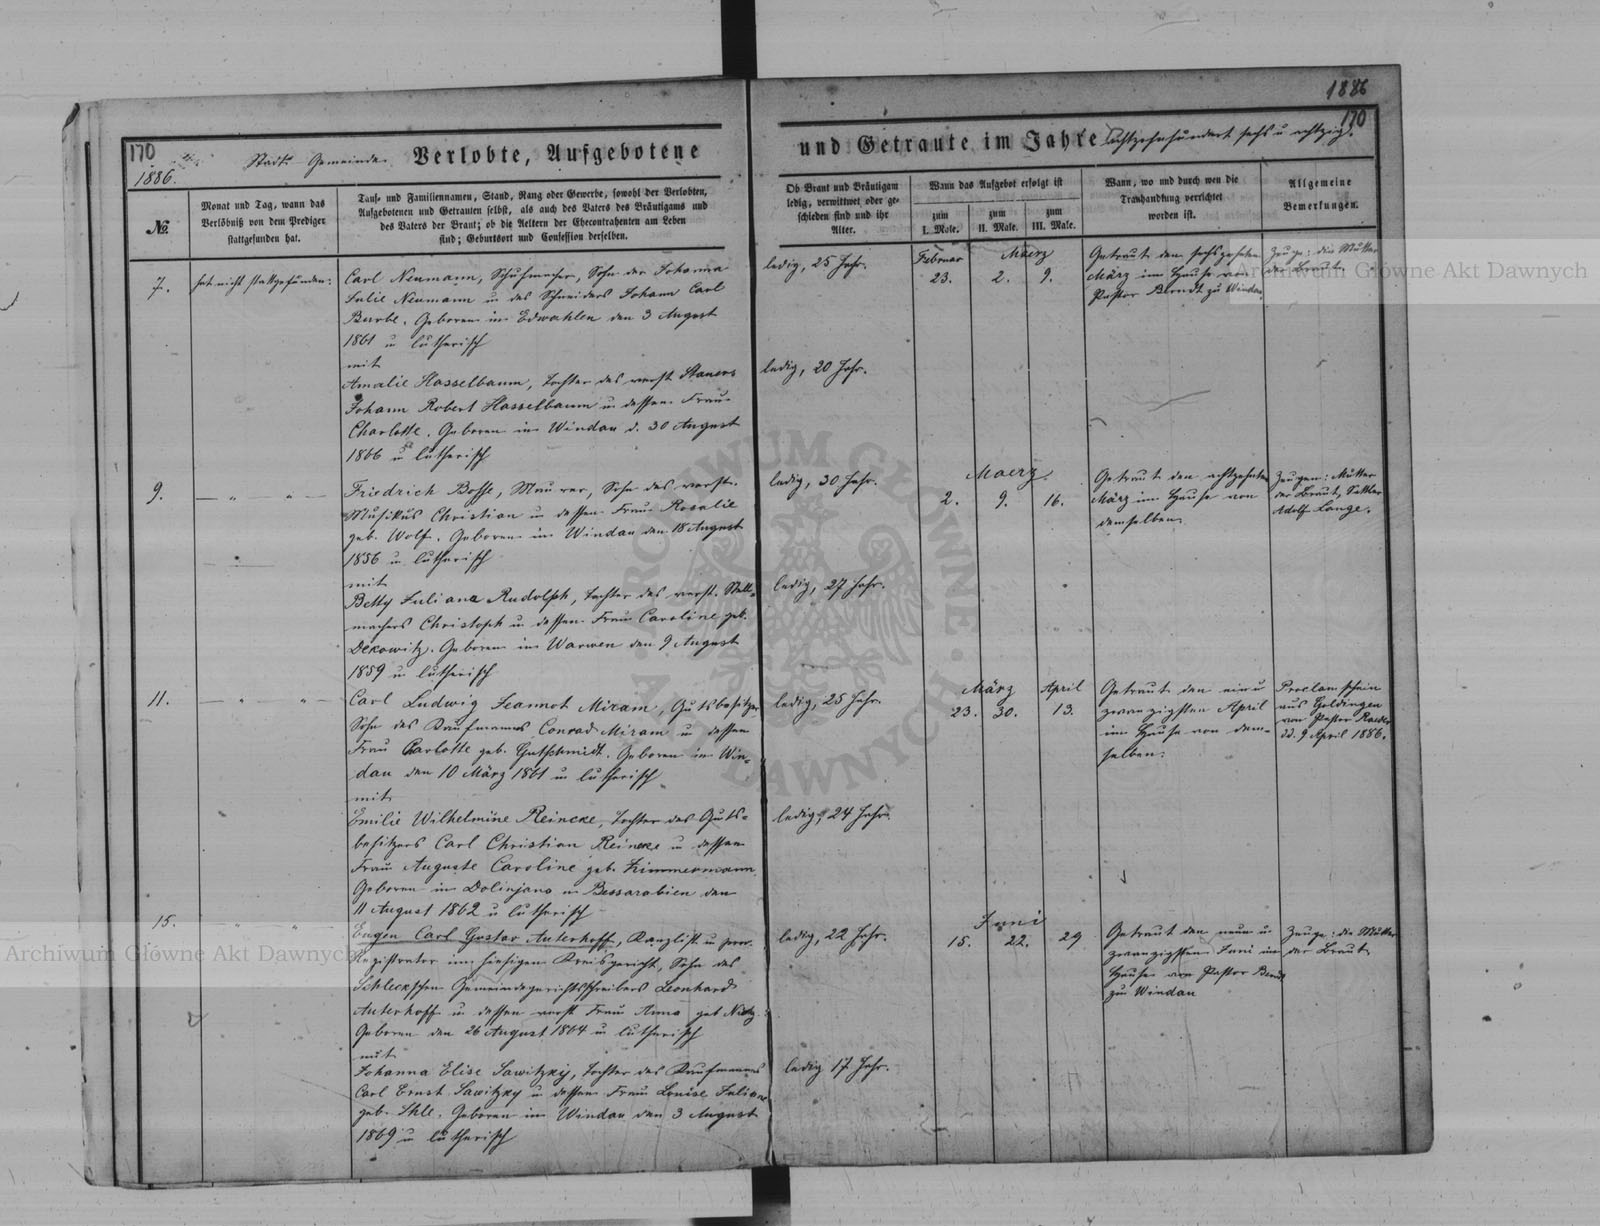 1886
170
170
1886.
Stadt-Gemeinde Verlobte, Aufgebotene
und Getraute im Jahre achtzehnhundert sechs u achtzig.
№
Monat und Tag, wann das
Verlöbniß von dem Prediger
stattgefunden hat.
Tauf- und Familiennamen, Stand, Rang oder Gewerbe, sowohl der Verlobten,
Aufgebotenen und Getrauten selbst, als auch des Vaters des Bräutigams und
des Vaters der Braut; ob die Aeltern der Ehecontrahenten am Leben
sind; Geburtsort und Confession derselben.
Ob Braut und Bräutigam
ledig, verwittwet oder ge-
schieden sind und ihr
Alter.
Wann das Aufgebot erfolgt ist
zum I. Male.
zum II. Male.
zum III. Male.
Wann, wo und durch wen die
Trauhandlung verrichtet
worden ist.
Allgemeine
Bemerkungen.
7.
hat nicht stattgefunden.
Carl Neumann, Schuhmacher, Sohn der Johanna
Julie Neumann u des Schneiders Johann Carl
Burbe. Geboren in Edwahlen den 3 August
1861 u lutherisch
mit
Amalie Hasselbaum, Tochter des verst.
Johann Robert Hasselbaum u dessen Frau
Charlotte. Geboren in Windau d. 30 August
1866 u lutherisch
ledig, 25 Jahr.
ledig, 20 Jahr.
Februar Maerz
23. 2. 9.
Getraut den sechszehnten
März im Hause von
Pastor Berndt zu Windau
Zeuge: die Mutter
der Braut
9.
— " — " —
Friedrich Bosse, Maurer, Sohn des verst.
Musikus Christian u dessen Frau Rosalie
geb. Wolf. Geboren in Windau den 18 August
1856 u lutherisch
mit
Betty Juliana Rudolph, Tochter des verst. Stell-
machers Christoph u dessen Frau Caroline geb.
Dekowitz. Geboren in Warwen den 9 August
1859 u lutherisch
ledig, 30 Jahr.
ledig, 27 Jahr.
Maerz.
2. 9. 16.
Getraut den achtzehnten
März im Hause von
demselben
Zeugen: Mutter
der Braut, Sattler
Adolf Lange.
11.
— " — " —
Carl Ludwig Jeannot Miram, Gutsbesitzer
Sohn des Kaufmanns Conrad Miram u dessen
Frau Charlotte geb. Gutschmidt. Geboren in Win-
dau den 10 März 1861 u lutherisch
mit
Emilie Wilhelmine Reincke, Tochter des Guts-
besitzers Carl Christian Reincke u dessen
Frau Auguste Caroline geb. Zimmermann
Geboren in Dolinjano in Bessarabien den
11 August 1862 u lutherisch
ledig, 25 Jahr.
ledig, 24 Jahr.
März April
23. 30. 13.
Getraut den ein u
zwanzigsten April
im Hause von dem-
selben.
Proclamschein
aus Goldingen
von Pastor
dd. 9 April 1886.
15.
" "
Eugen Carl Gustav Auterhoff, Kanzlist u
Registrator im hiesigen Kreisgericht, Sohn des
Schleckschen Gemeindegerichtsschreibers Leonhard
Auterhoff u dessen verst Frau Anna geb
Geboren den 26 August 1864 u lutherisch
mit
Johanna Elise Sawitzky, Tochter des Kaufmanns
Carl Ernst Sawitzky u dessen Frau Louise Juliane
geb. Geboren in Windau den 3 August
1869 u lutherisch
ledig, 22 Jahr.
ledig 17 Jahr.
Juni
15. 22. 29
Getraut den neun u
zwanzigsten Juni im
Hause von Pastor Berndt
zu Windau
Zeuge: die Mutter
der Braut
Archiwum Główne Akt Dawnych
Archiwum Główne Akt Dawnych
ARCHIWUM GŁÓWNE · AKT DAWNYCH ·